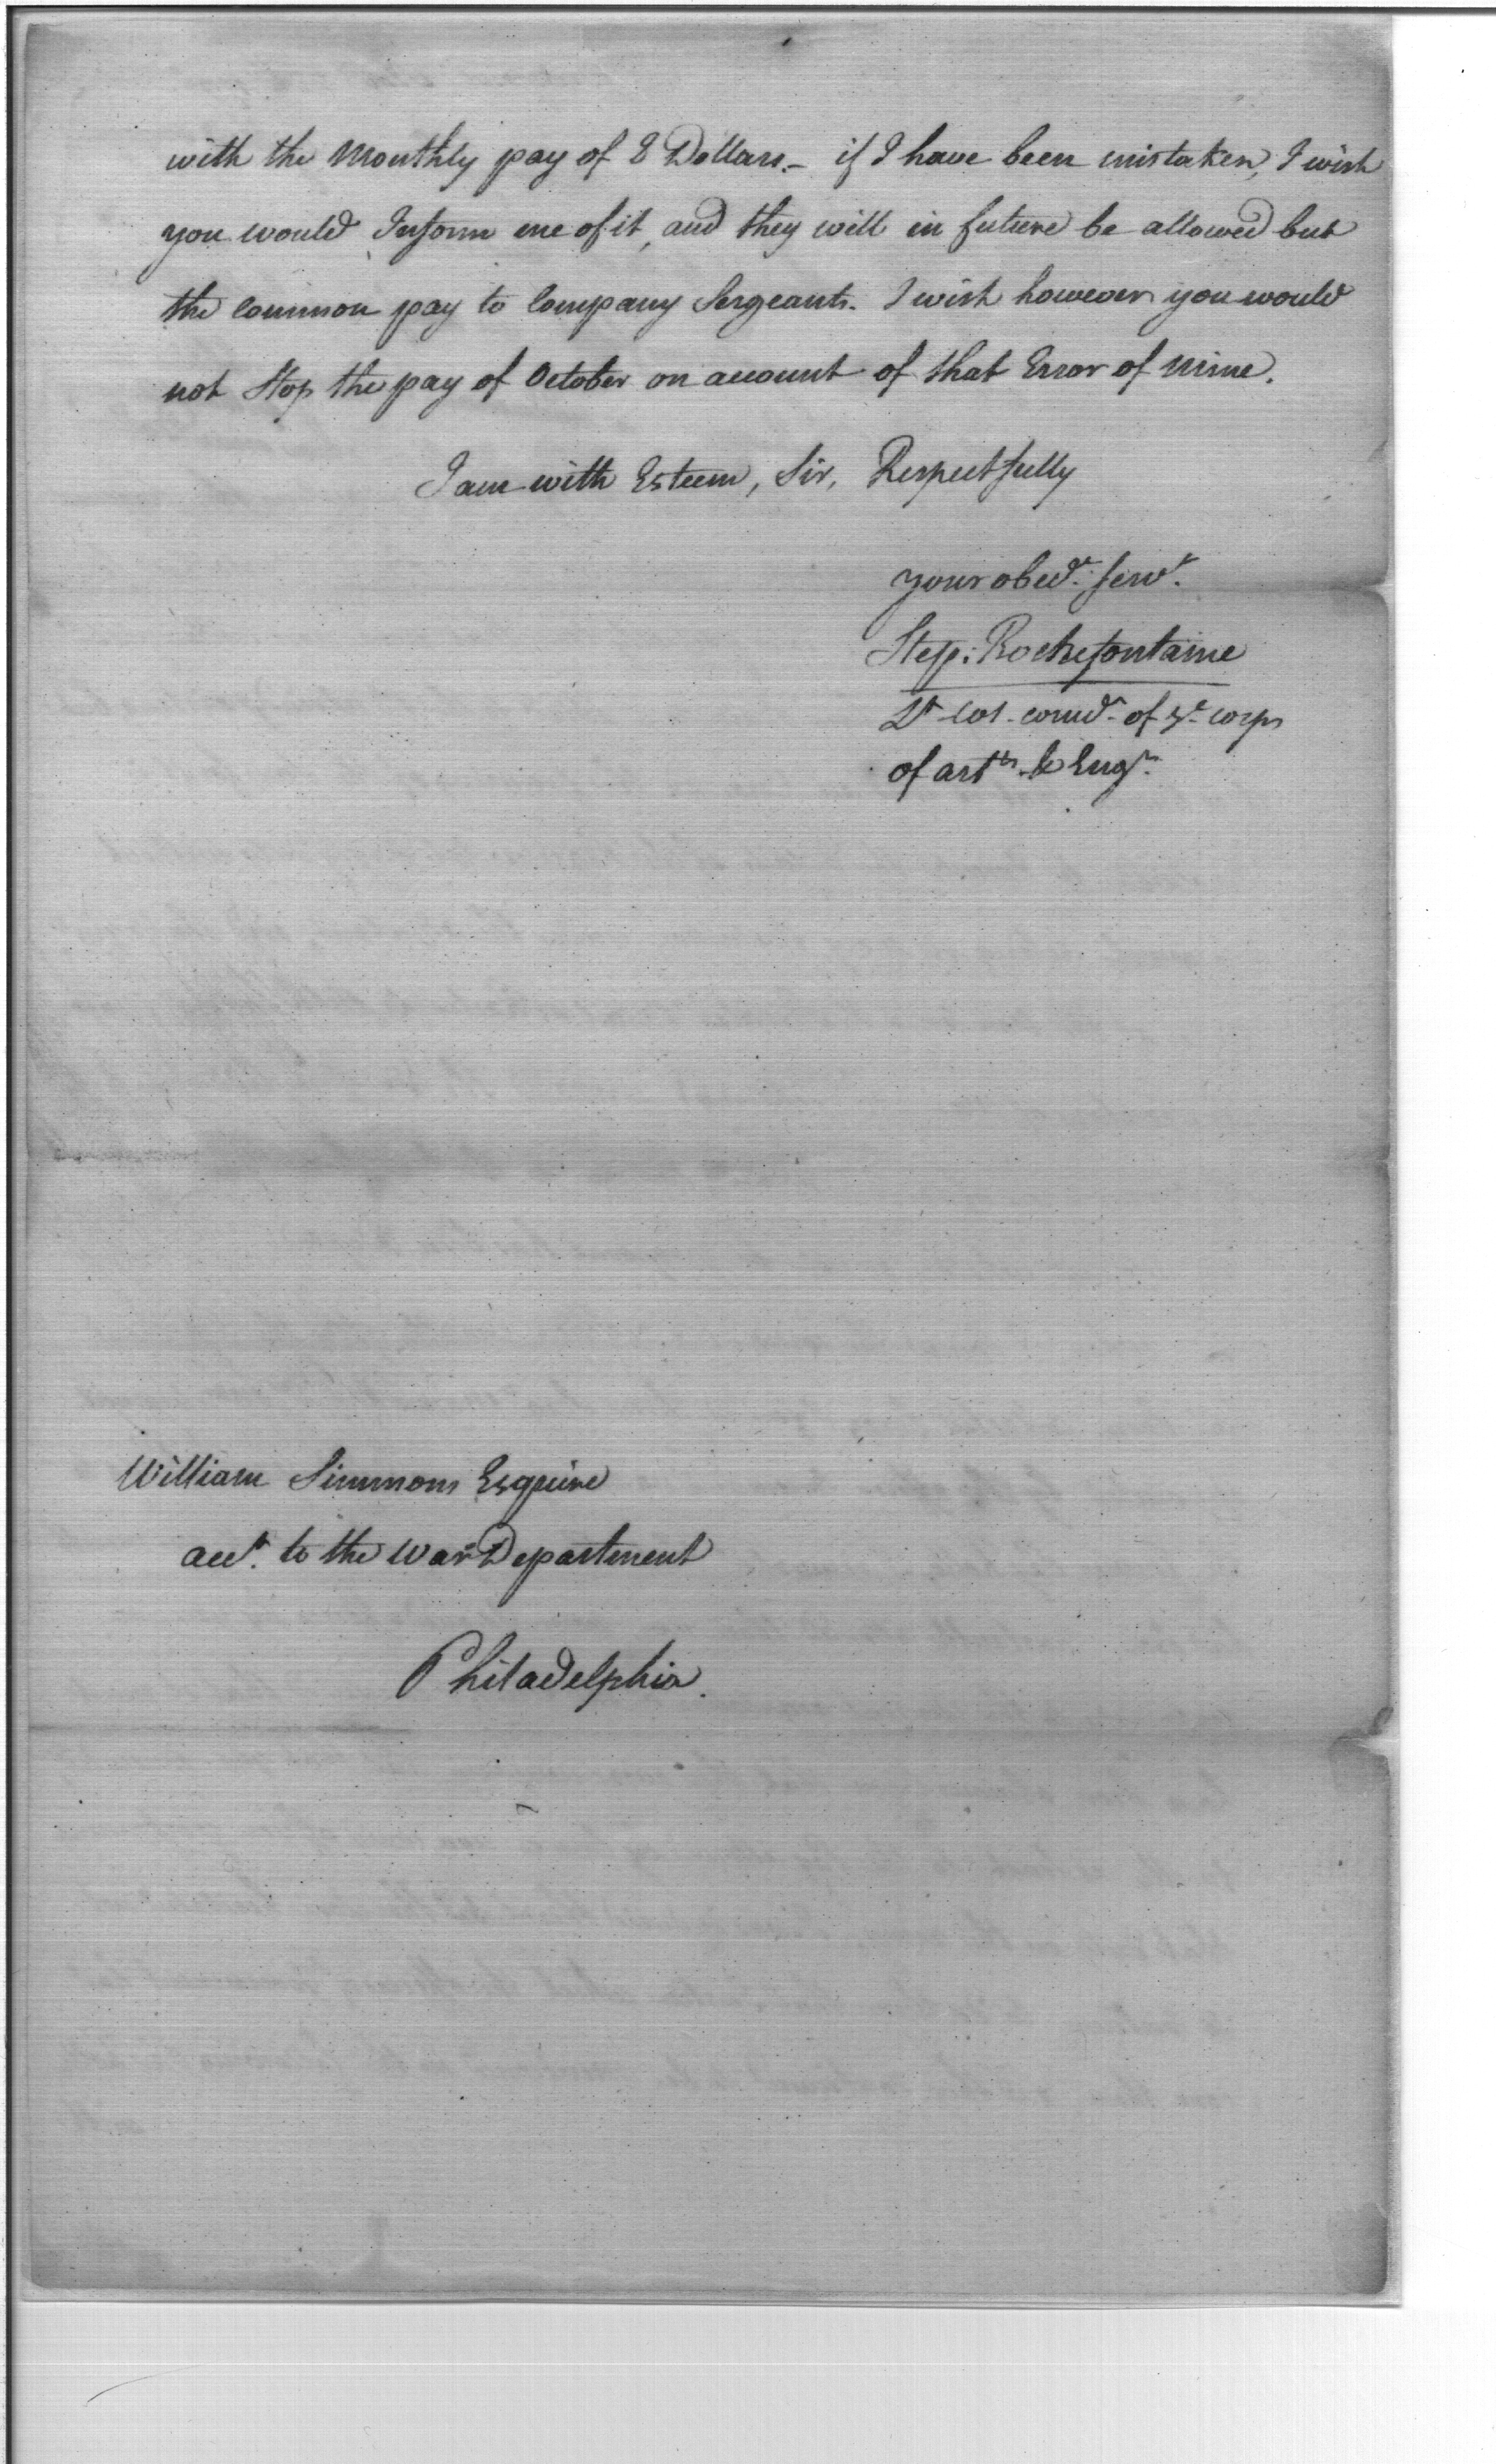 with the Monthly pay of 8 Dollars.- if I have been mistaken, I wish
you would Inform me of it, and they will in future be allowed but
the common pay to Company Sergeants. I wish however you would
not Stop the pay of October on account of that Error of mine.
I am with Esteem, Sir, Respectfully
your obedt. servt.
Step: Rochefontaine
Lt Col. comdt of ye corps
of artrs & Engrs
William Simmons Esquire
acct. to the War Department
Philadelphia.